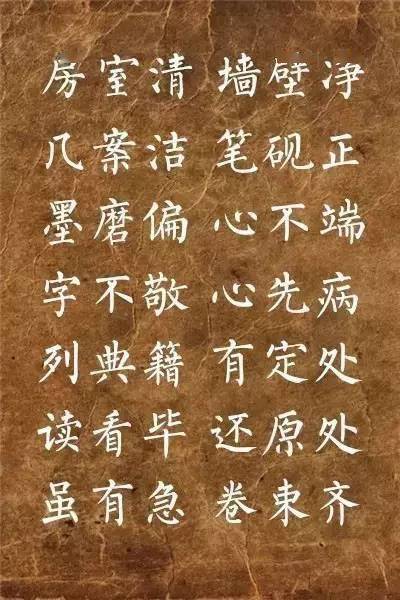 房室清 墙壁净
几案洁 笔砚正
墨磨偏 心不端
字不敬 心先病
列典籍 有定处
读看毕 还原处
虽有急 卷束齐